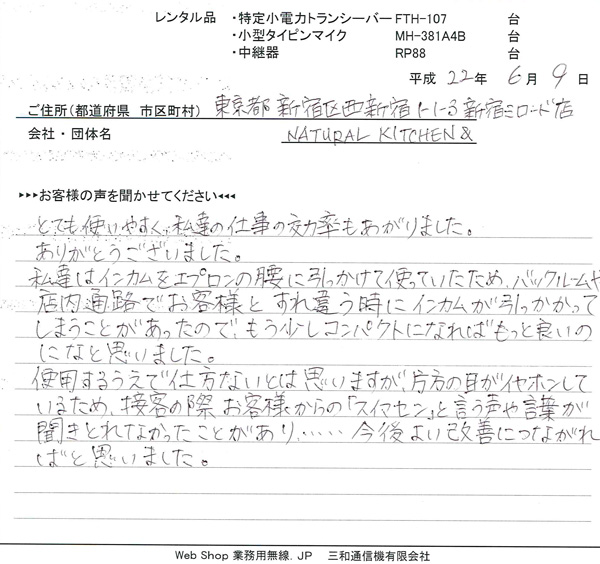 レンタル品 ・特定小電力トランシーバー FTH-107 台
・小型タイピンマイク MH-381A4B 台
・中継器 RP88 台
平成 22年 6月 9日
ご住所(都道府県 市区町村) 東京都新宿区西新宿1-1-3新宿ミロード店
会社・団体名 NATURAL KITCHEN &
▸▸▸お客様の声を聞かせてください◂◂◂
とても使いやすく、私達の仕事の効率もあがりました。
ありがとうございました。
私達はインカムをエプロンの腰に引っかけて使っていたため、バックルームや
店内通路でお客様とすれ違う時にインカムが引っかかって
しまうことがあったので、もう少しコンパクトになればもっと良いの
になと思いました。
使用するうえで仕方ないとは思いますが、片方の耳がイヤホンして
いるため、接客の際、お客様からの「スイマセン」と言う声や言葉が
聞きとれなかったことがあり、…… 今後よい改善につながれ
ばと思いました。
Web Shop 業務用無線.JP 三和通信機有限会社